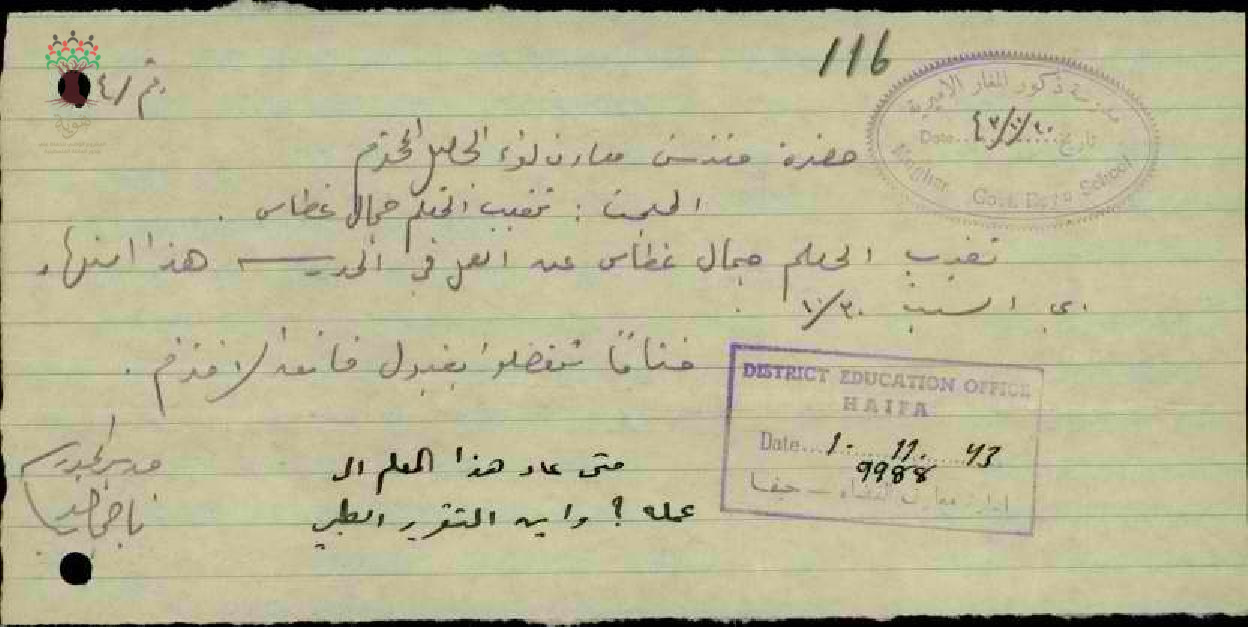 116
رقم /٤
مدرسة ذكور المغار الاميرية
Date.... ٤٣/١٠/٣٠ .... تاريخ
Maghar Govt. Boys School
حضرة مفتش معارف لواء الجليل المحترم
المبحث : تغيب المعلم جمال غطاس .
تغيب المعلم جمال غطاس عن العمل في المدرسة هذا النهار
اي السبت ١٠/٣٠
ختاماً تفضلوا بقبول فائق الاحترام .
مدير المدرسة
DISTRICT EDUCATION OFFICE
HAIFA
Date... 1. 11. 43
9988
ادارة معارف القضاء – حيفا
متى عاد هذا المعلم الى
عمله ؟ واين التقرير الطبي
هوية